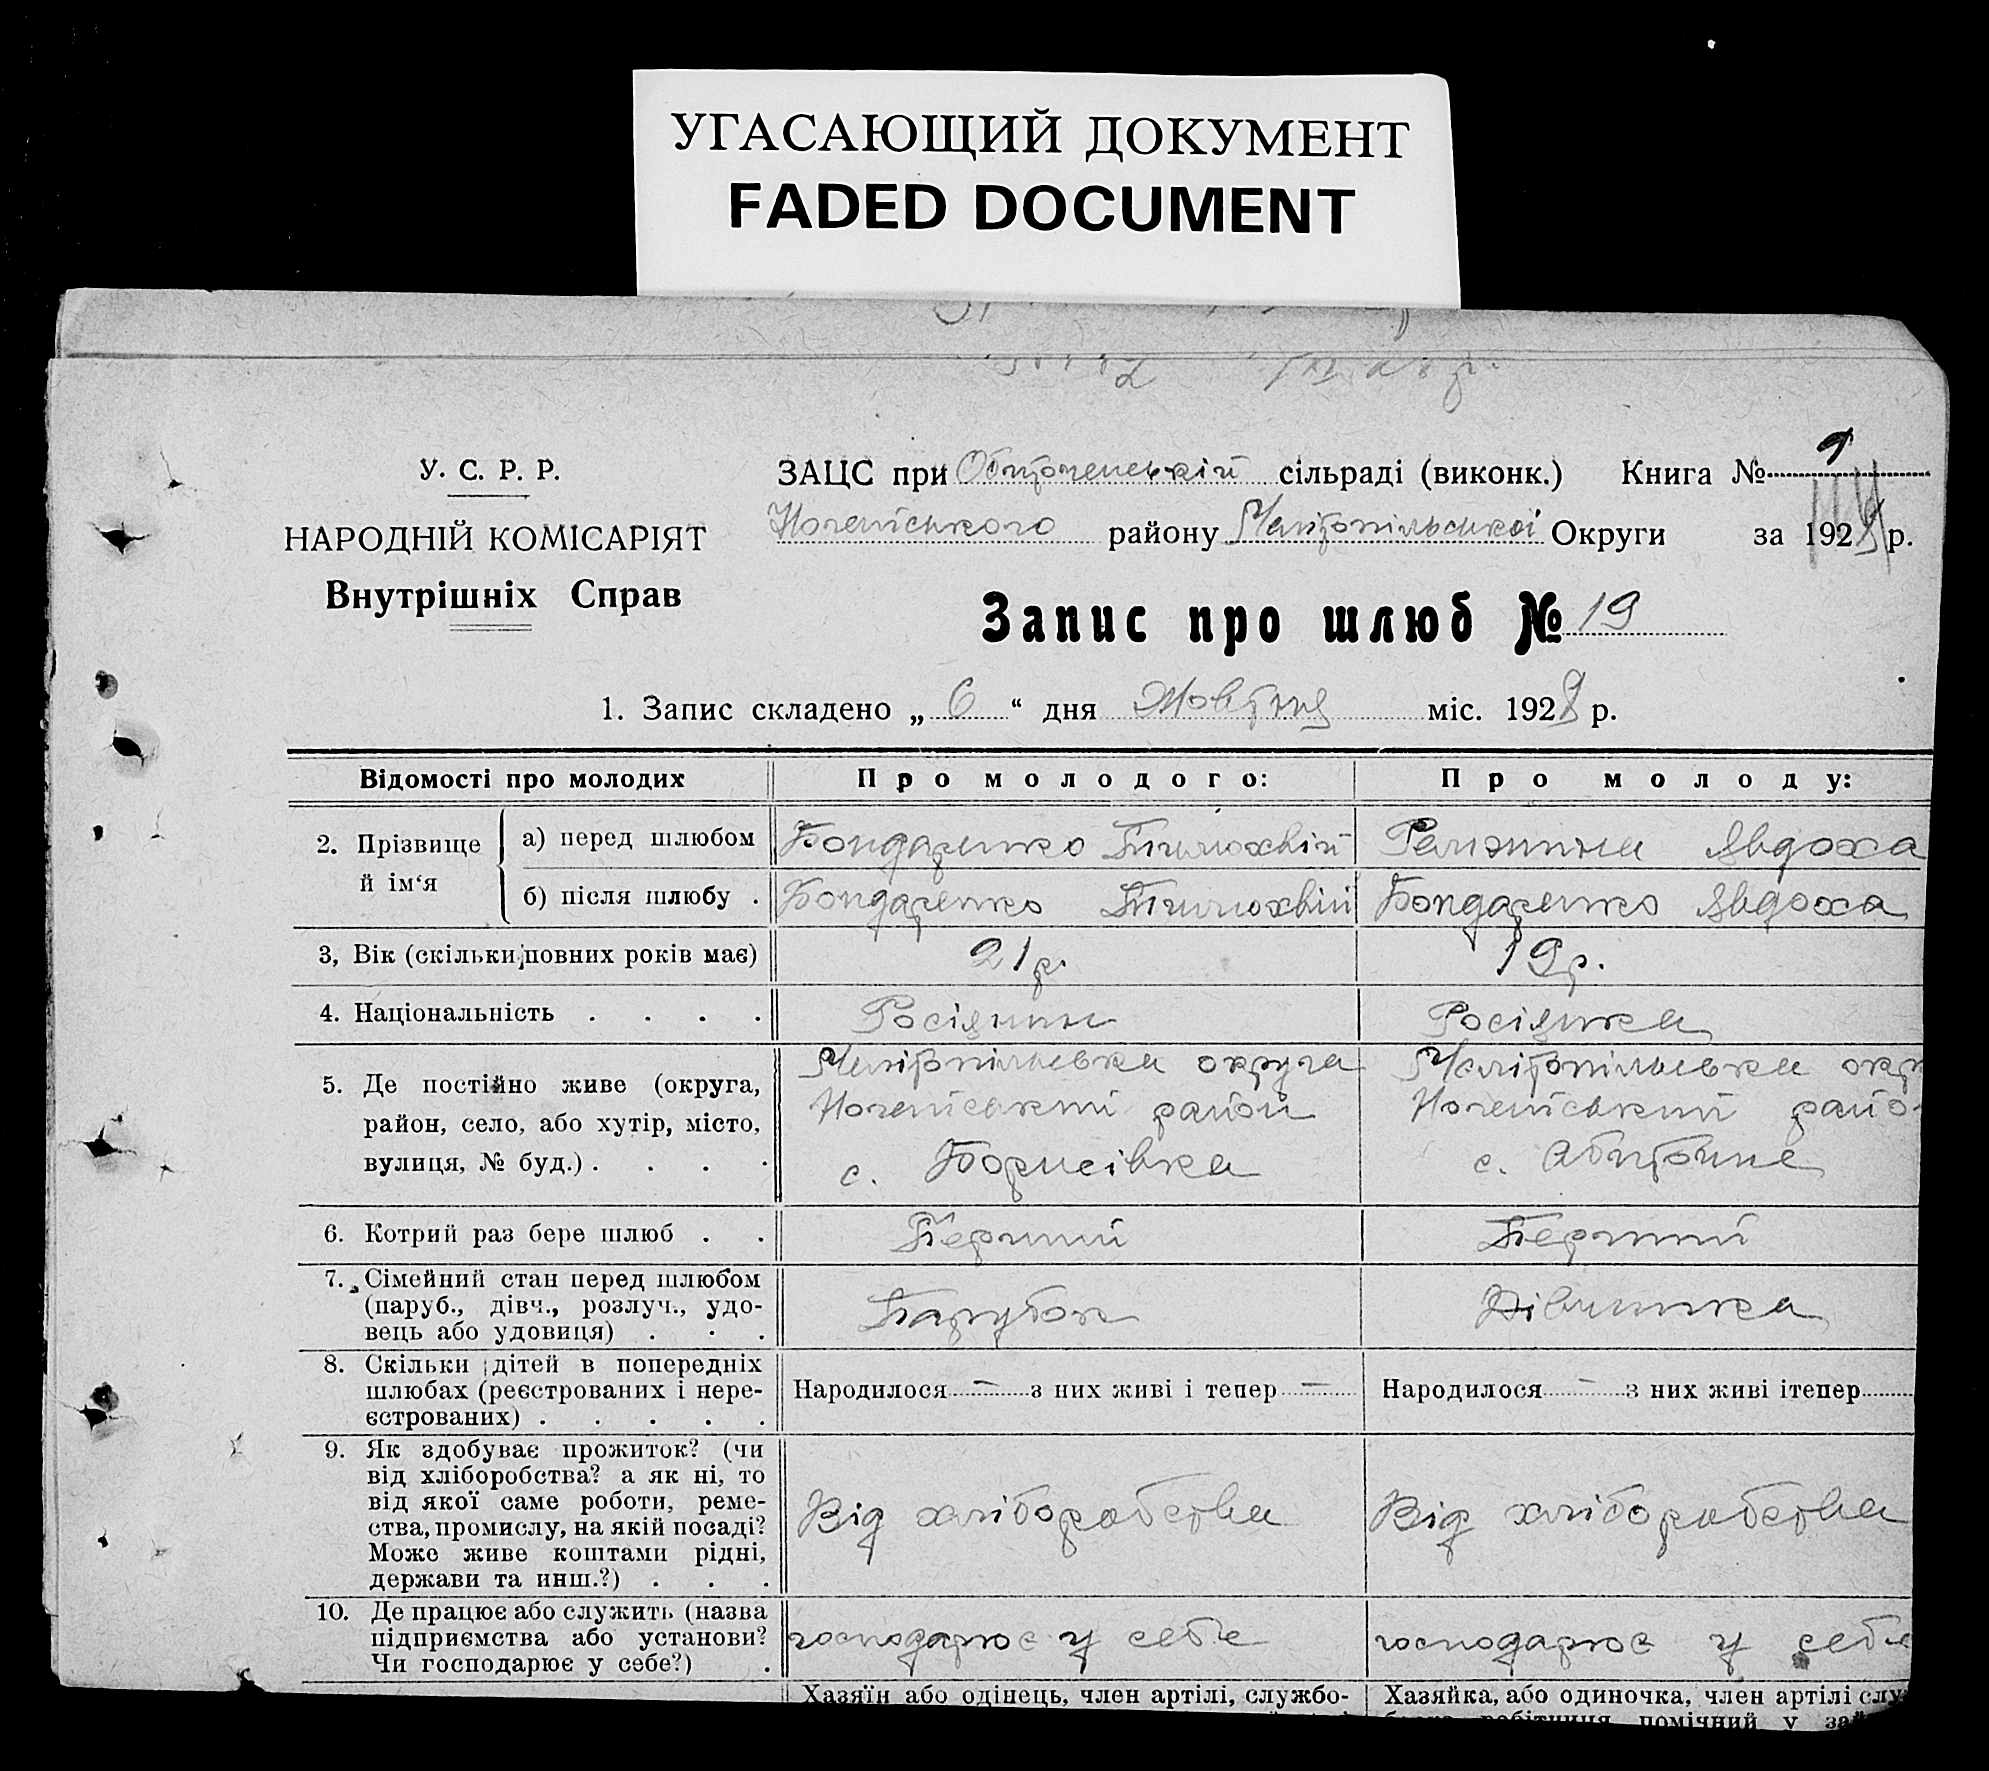 УГАСАЮЩИЙ ДОКУМЕНТ
FADED DOCUMENT
У. С. Р. Р.
НАРОДНІЙ КОМІСАРІЯТ
Внутрішніх Справ
ЗАЦС при Обиточенській сільраді (виконк.) Книга №
Ногайського району Мелітопільської Округи за 192 р.
Запис про шлюб № 19
1. Запис складено „ 6 “ дня Жовтня міс. 192 р.
Відомості про молодих Про молодого: Про молоду:
2. Прізвище й ім‘я
а) перед шлюбом Бондаренко Тимохвій Явдоха
б) після шлюбу . Бондаренко Тимохвій Бондаренко Явдоха
3, Вік (скільки повних років має) 21 р. 19 р.
4. Національність . . . . Росіянин Росіянка
5. Де постійно живе (округа, Мелітопільська округа Мелітопільська окр
район, село, або хутір, місто, Ногайський район Ногайський райо
вулиця, № буд.) . . . . с. Борисівка с. Абиточне
6. Котрий раз бере шлюб . . Перший Перший
7. Сімейний стан перед шлюбом
(паруб., дівч., розлуч., удо- Парубок Дівчинка
вець або удовиця) . . .
8. Скільки дітей в попередніх
шлюбах (реєстрованих і нере- Народилося — з них живі і тепер — Народилося — з них живі ітепер
єстрованих) . . . . .
9. Як здобуває прожиток? (чи
від хліборобства? а як ні, то
від якої саме роботи, реме-
ства, промислу, на якій посаді? Від хліборобства Від хліборобства
Може живе коштами рідні,
держави та инш.?) . . .
10. Де працює або служить (назва
підприємства або установи? господарює у себе господарює у себе
Чи господарює у себе?) .
Хазяїн або одінець, член артілі, службо- Хазяйка, або одиночка, член артілі слу
робітниця помічний у